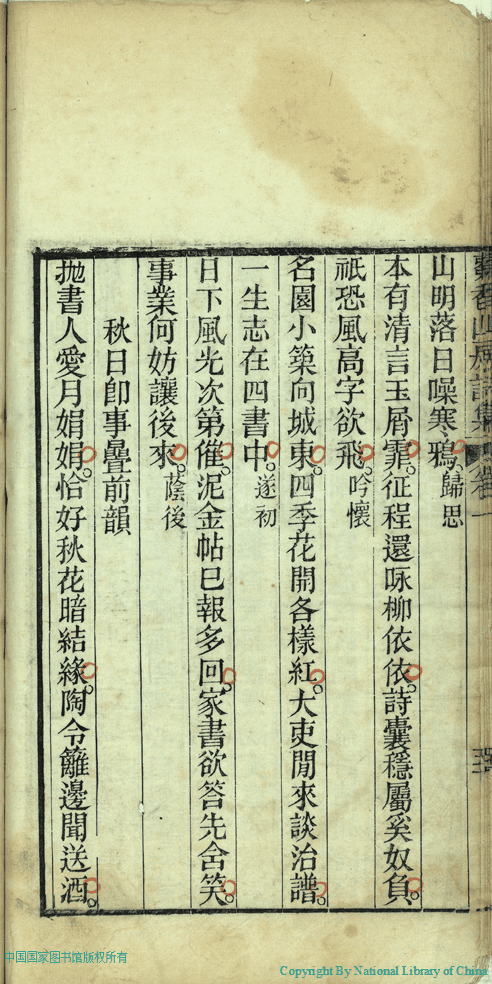 山明落日噪寒鴉歸思
本有清言玉屑霏征程還咏柳依依詩囊穩屬奚奴負
祇恐風高字欲飛吟懷
名園小築向城東四季花開各樣紅大吏閒來談治譜
一生志在四書中遂初
日下風光次第催泥金帖巳報多回家書欲答先舍笑
事業何妨讓後來蔭後
秋日卽事疊前韻
拋書人愛月娟娟恰好秋花暗結緣陶令籬邊聞送酒
中国国家图书馆版权所有
Copyright By National Library of China